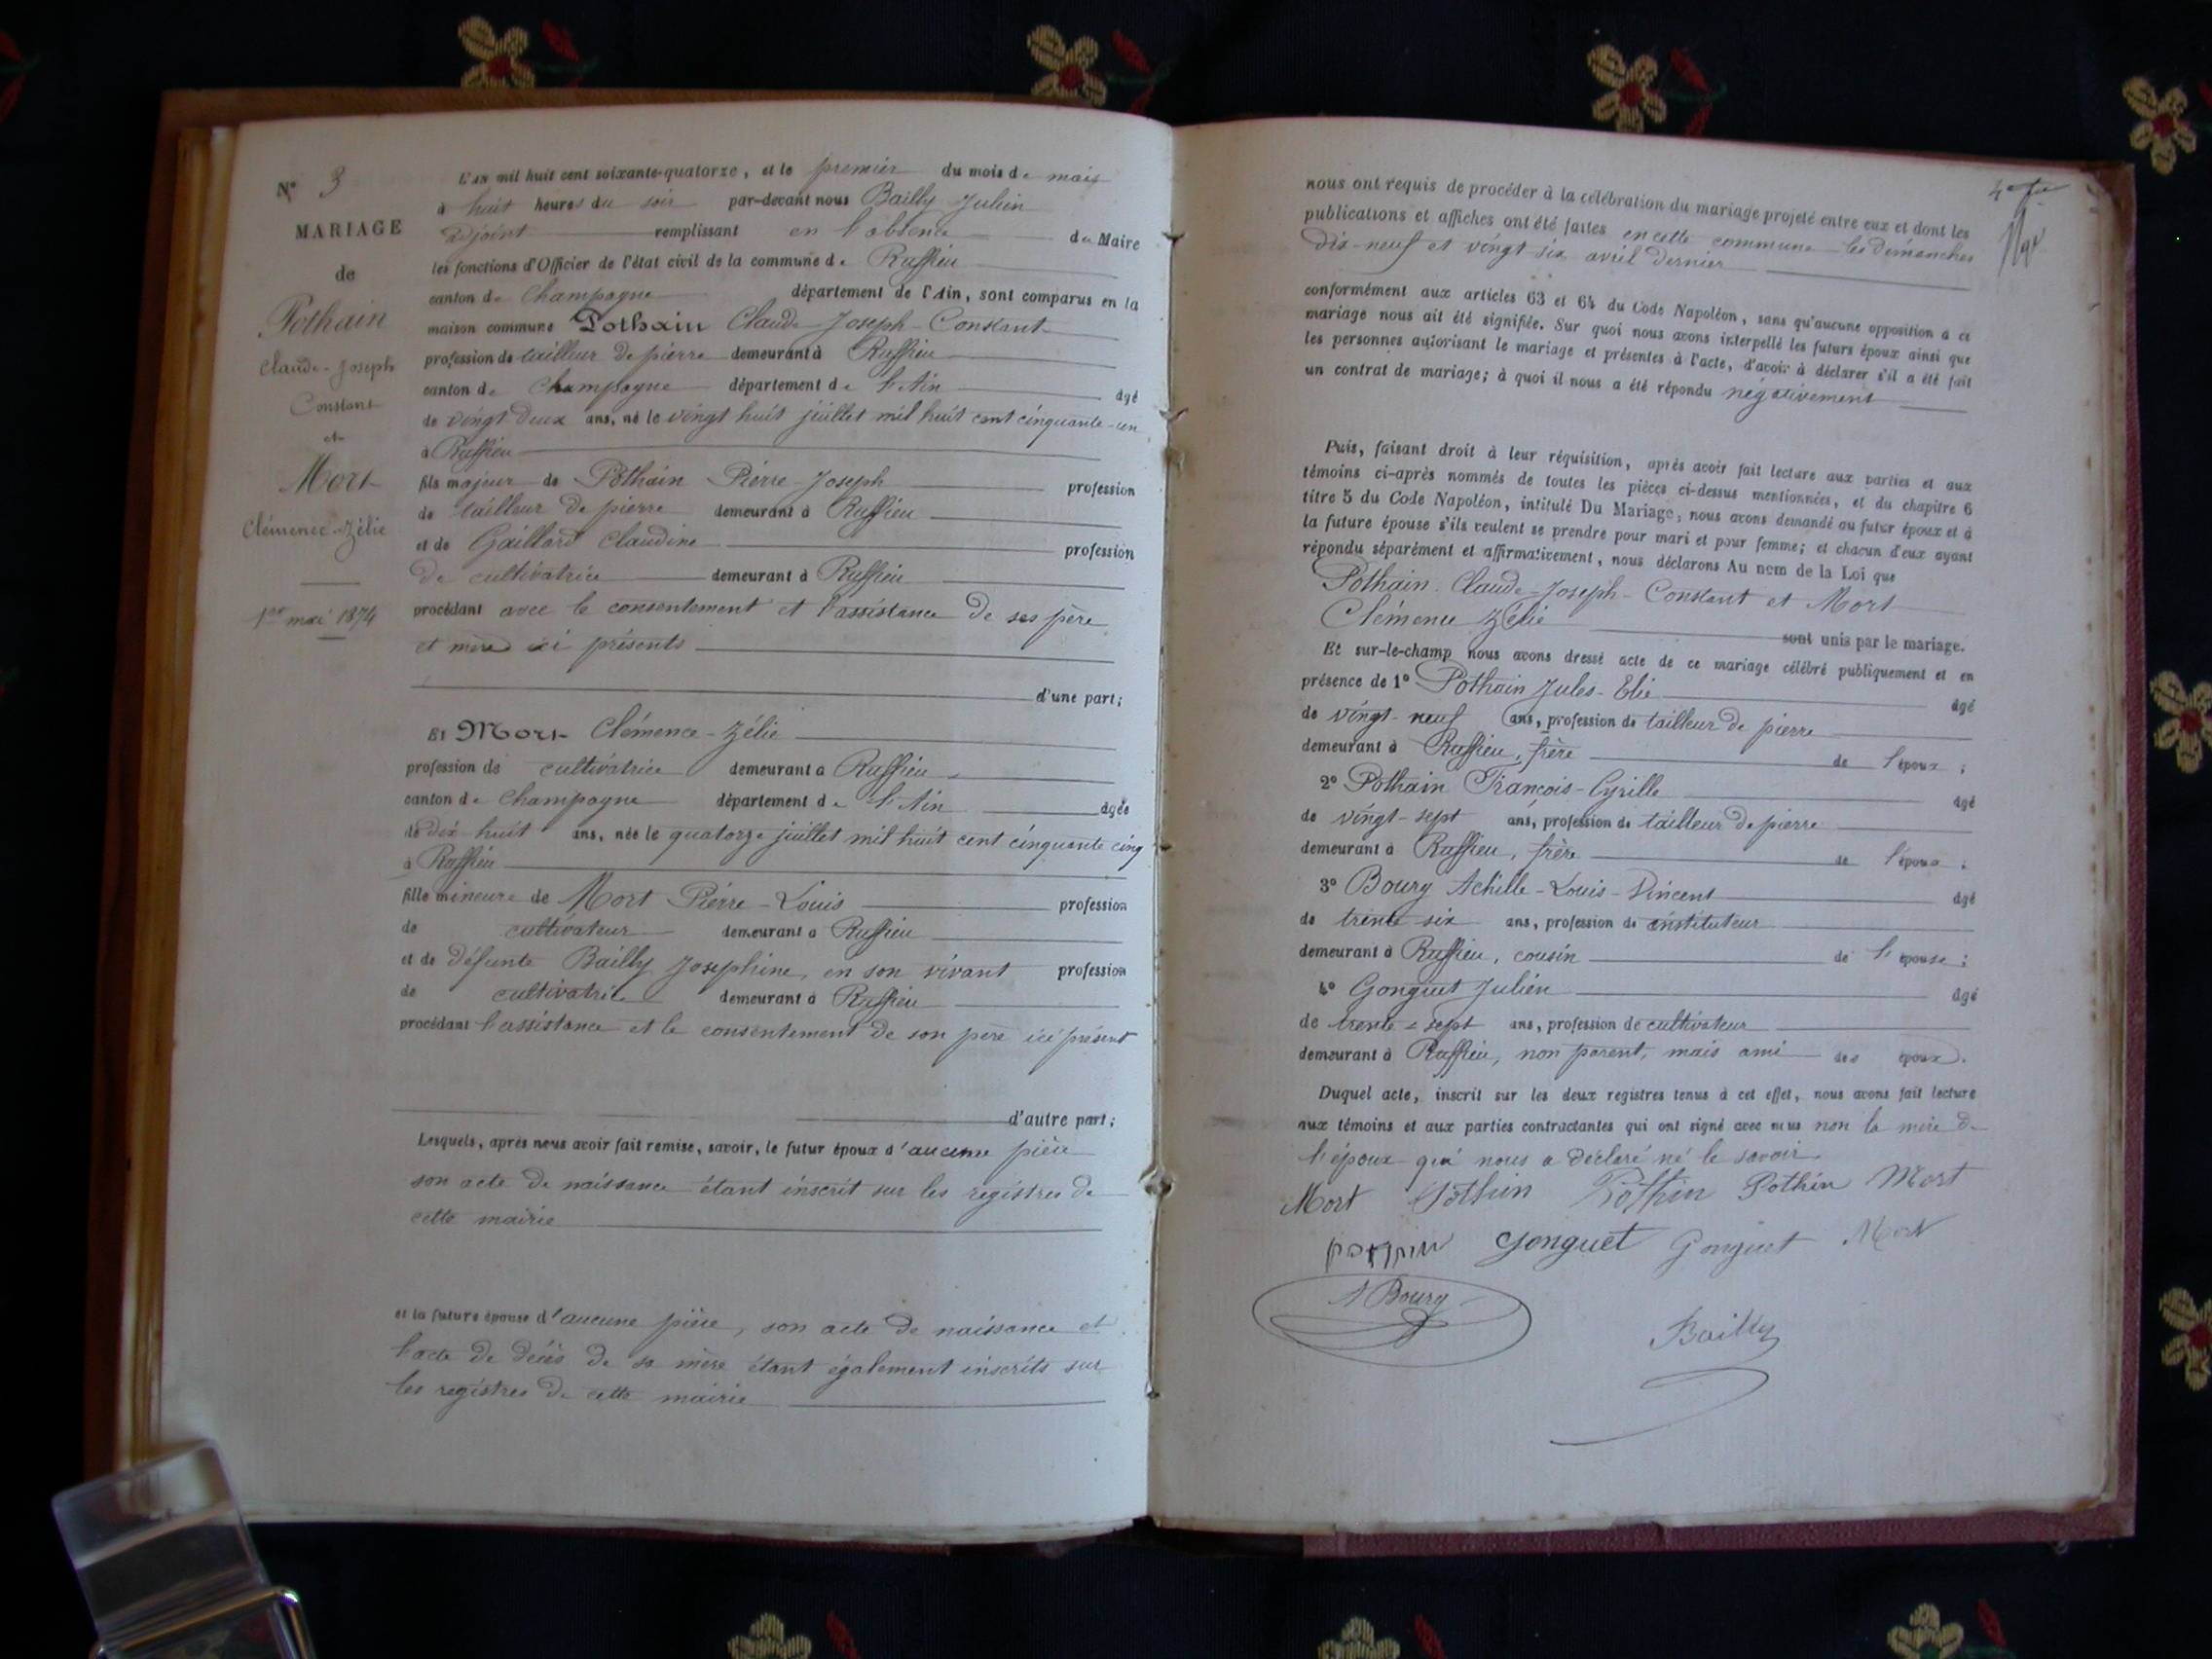 N° 3
MARIAGE
de
Pothain
Claude-Joseph
Constant
et
Mort
Clémence-Zélie
1er mai 1874
L'AN mil huit cent soixante-quatorze, et le premier du mois de mai
à huit heures du soir par-devant nous Bailly Julien
adjoint remplissant en l'absence du Maire
les fonctions d'Officier de l'état civil de la commune de Ruffieu
canton de Champagne département de l'Ain, sont comparus en la
maison commune Pothain Claude-Joseph-Constant
profession de tailleur de pierre demeurant à Ruffieu
canton de Champagne département de l'Ain âgé
de vingt deux ans, né le vingt huit juillet mil huit cent cinquante-un
à Ruffieu
fils majeur de Pothain Pierre-Joseph profession
de tailleur de pierre demeurant à Ruffieu
et de Gaillard Claudine profession
de cultivatrice demeurant à Ruffieu
procédant avec le consentement et l'assistance de ses père
et mère ici présents
d'une part;
Et Mort Clémence-Zélie
profession de cultivatrice demeurant à Ruffieu
canton de Champagne département de l'Ain âgée
de dix huit ans, née le quatorze juillet mil huit cent cinquante cinq
à Ruffieu
fille mineure de Mort Pierre-Louis profession
de cultivateur demeurant à Ruffieu
et de défunte Bailly Josephine, en son vivant profession
de cultivatrice demeurant à Ruffieu
procédant l'assistance et le consentement de son père ici présent
d'autre part;
Lesquels, après nous avoir fait remise, savoir, le futur époux d'aucune pièce
son acte de naissance étant inscrit sur les registres de
cette mairie
et la future épouse d'aucune pièce, son acte de naissance et
l'acte de décès de sa mère étant également inscrits sur
les registres de cette mairie
nous ont requis de procéder à la célébration du mariage projeté entre eux et dont les
publications et affiches ont été faites en cette commune les dimanches
dix-neuf et vingt six avril dernier
conformément aux articles 63 et 64 du Code Napoléon, sans qu'aucune opposition à ce
mariage nous ait été signifiée. Sur quoi nous avons interpellé les futurs époux ainsi que
les personnes autorisant le mariage et présentes à l'acte, d'avoir à déclarer s'il a été fait
un contrat de mariage; à quoi il nous a été répondu négativement
Puis, faisant droit à leur réquisition, après avoir fait lecture aux parties et aux
témoins ci-après nommés de toutes les pièces ci-dessus mentionnées, et du chapitre 6
titre 5 du Code Napoléon, intitulé Du Mariage, nous avons demandé au futur époux et à
la future épouse s'ils veulent se prendre pour mari et pour femme; et chacun d'eux ayant
répondu séparément et affirmativement, nous déclarons Au nom de la Loi que
Pothain Claude-Joseph-Constant et Mort
Clémence Zélie
sont unis par le mariage.
Et sur-le-champ nous avons dressé acte de ce mariage célébré publiquement et en
présence de 1° Pothain Jules-Elie âgé
de vingt-neuf ans, profession de tailleur de pierre
demeurant à Ruffieu, frère de l'époux;
2° Pothain François-Cyrille âgé
de vingt-sept ans, profession de tailleur de pierre
demeurant à Ruffieu, frère de l'époux;
3° Bourg Achille-Louis-Vincent âgé
de trente-six ans, profession de instituteur
demeurant à Ruffieu, cousin de l'épouse;
4° Gonguet Julien âgé
de trente-sept ans, profession de cultivateur
demeurant à Ruffieu, non parent, mais ami des époux.
Duquel acte, inscrit sur les deux registres tenus à cet effet, nous avons fait lecture
aux témoins et aux parties contractantes qui ont signé avec nous non la mère de
l'époux qui nous a déclaré né le savoir.
Mort Pothin Pothin Pothin Mort
Gonguet Gonguet Mort
A Bourg
Bailly